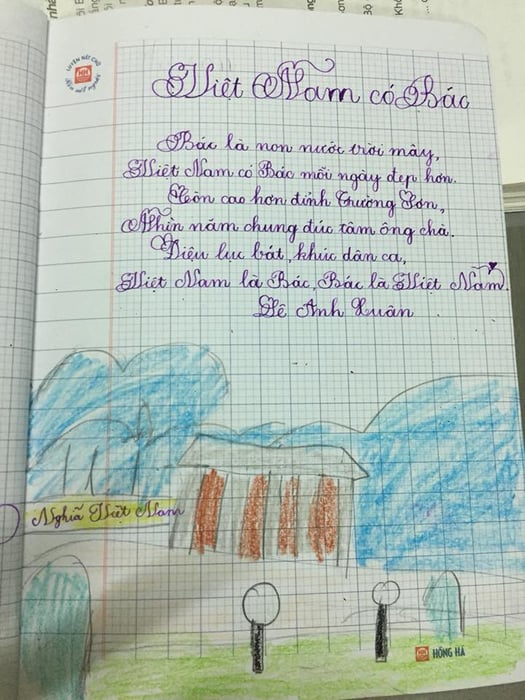 LUYỆN NÉT CHỮ
RÈN NẾT NGƯỜI
Việt Nam có Bác
Bác là non nước trời mây,
Việt Nam có Bác mỗi ngày đẹp hơn.
Còn cao hơn đỉnh Trường Sơn,
Nhìn năm chung đúc tâm ông cha.
Điệu lục bát, khúc dân ca,
Việt Nam là Bác, Bác là Việt Nam.
Lê Anh Xuân
Nghĩa Việt Nam
HỒNG HÀ